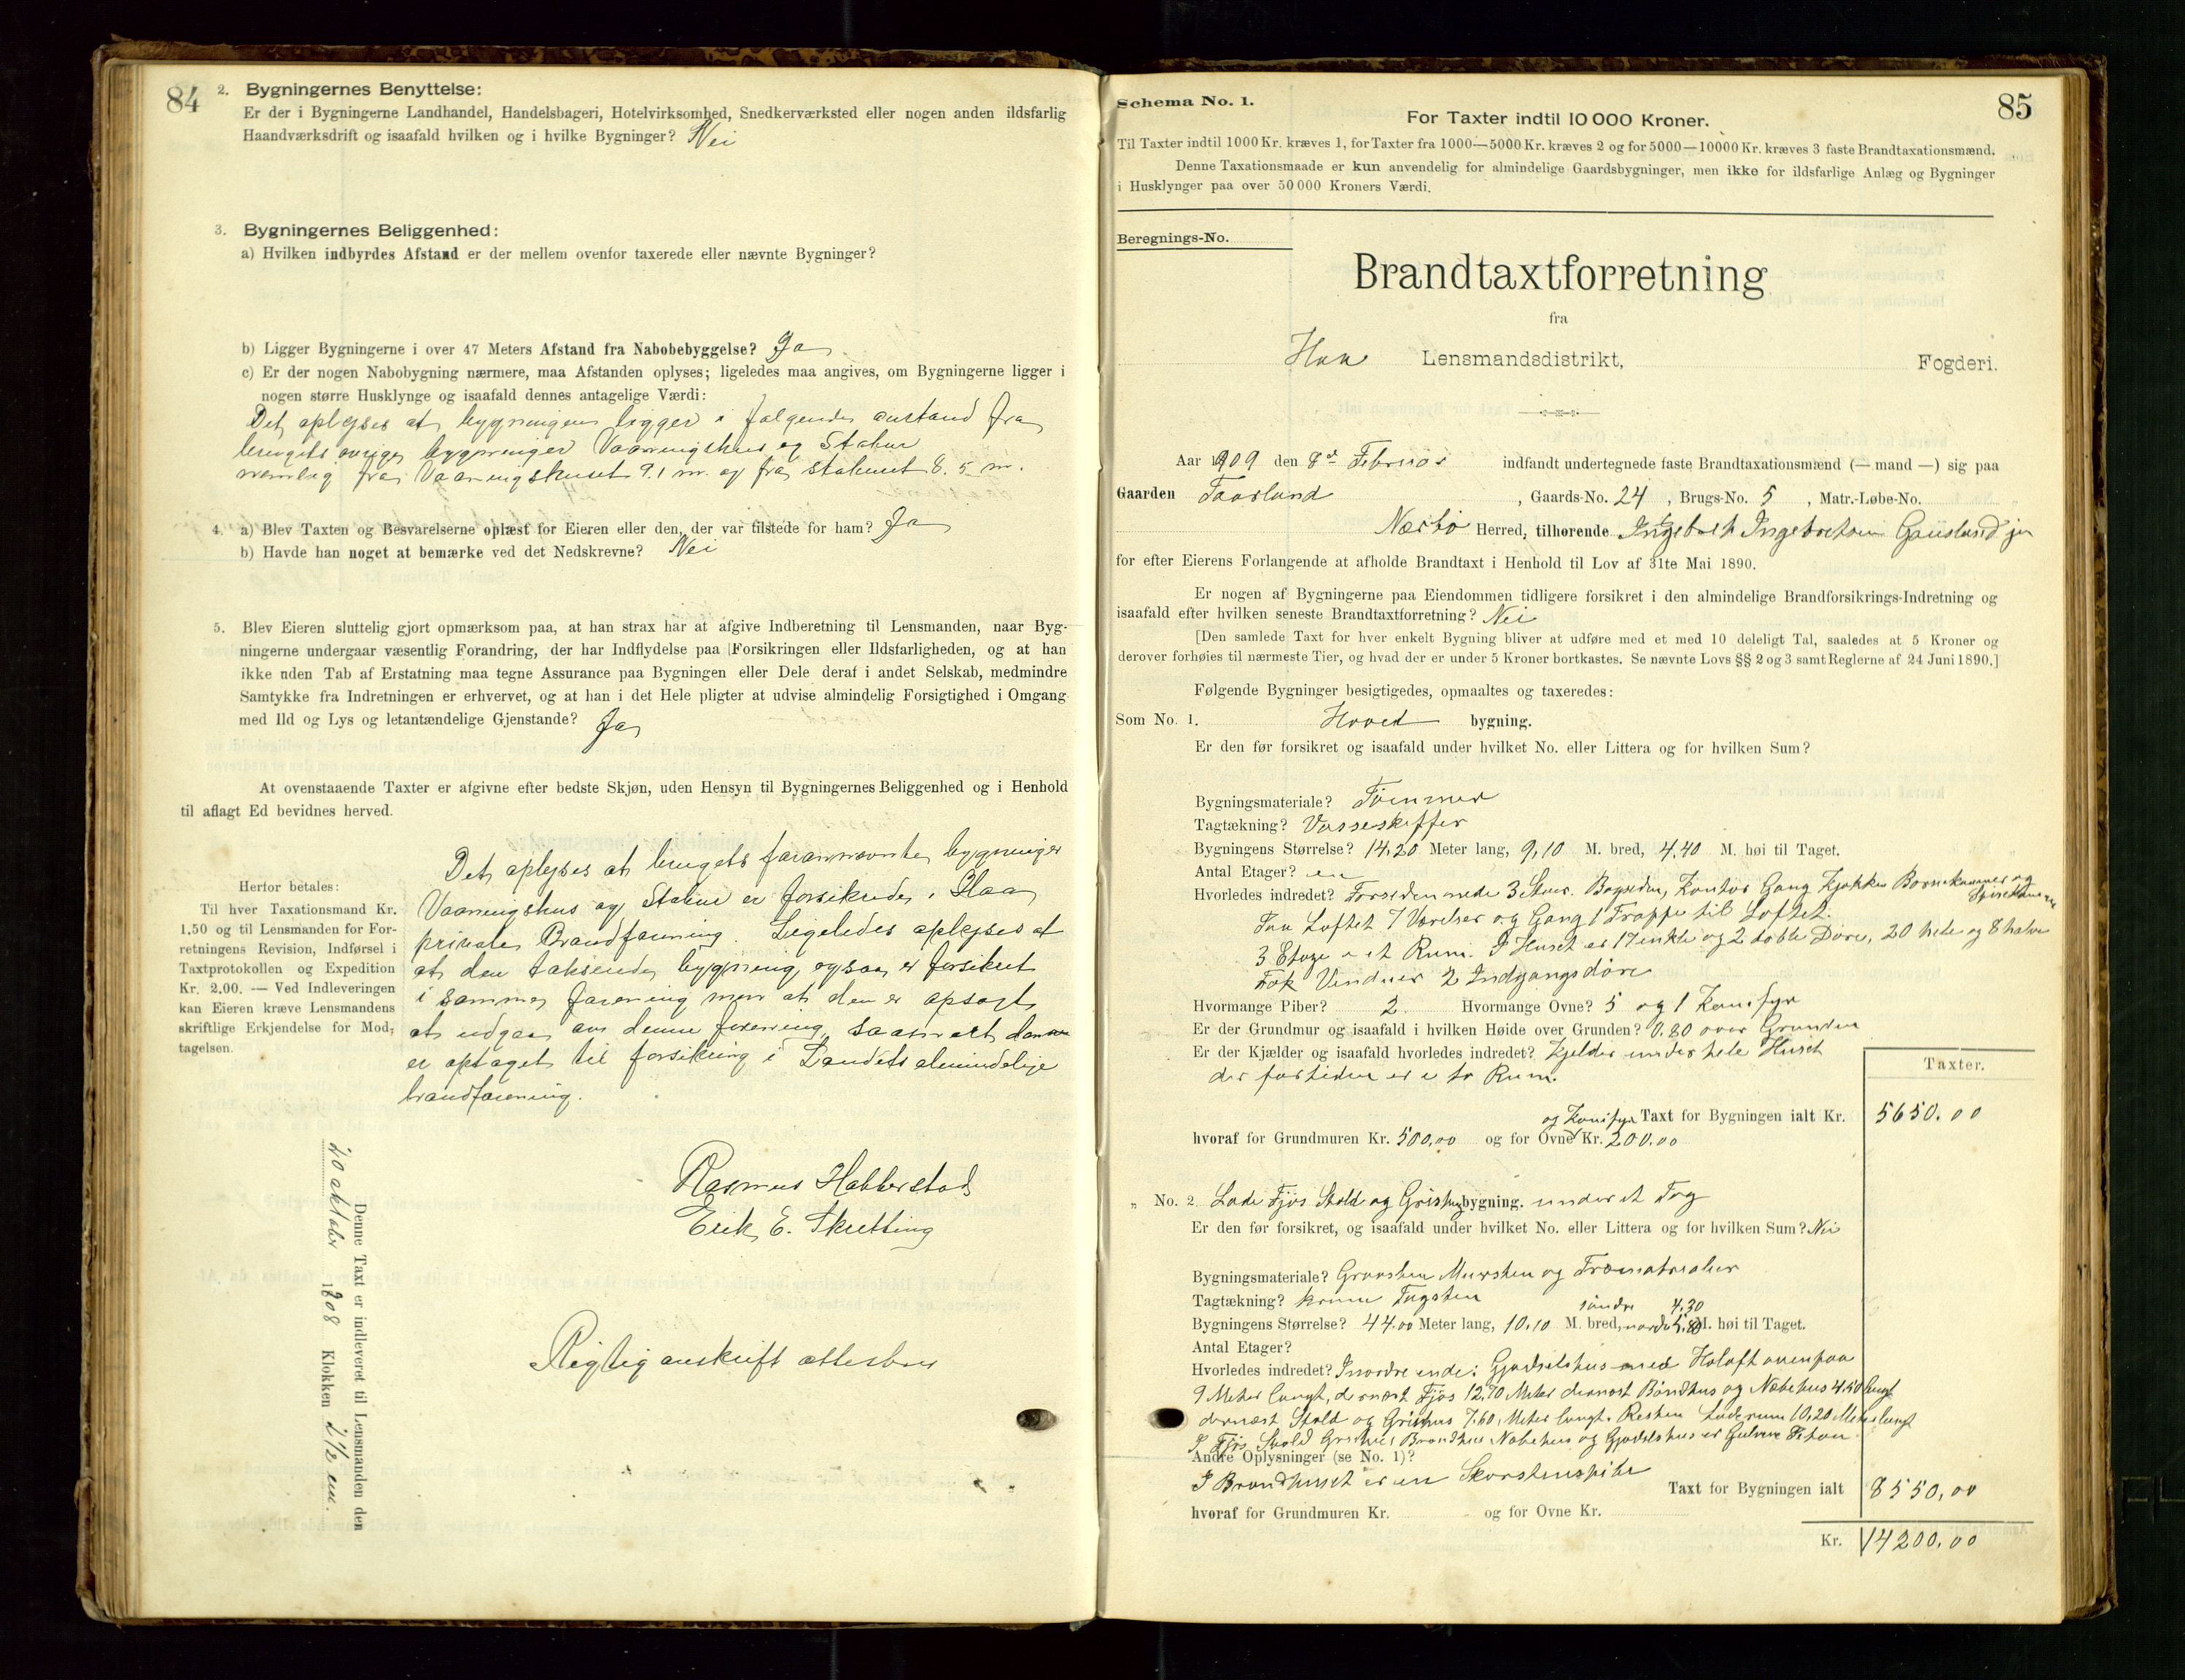 84
2. Bygningernes Benyttelse:
Er der i Bygningerne Landhandel, Handelsbageri, Hotelvirksomhed, Snedkerværksted eller nogen anden ildsfarlig
Haandværksdrift og isaafald hvilken og i hvilke Bygninger? Nei
3. Bygningernes Beliggenhed:
a) Hvilken indbyrdes Afstand er der mellem ovenfor taxerede eller nævnte Bygninger?
b) Ligger Bygningerne i over 47 Meters Afstand fra Nabobebyggelse? Ja
c) Er der nogen Nabobygning nærmere, maa Afstanden oplyses; ligeledes maa angives, om Bygningerne ligger i
nogen større Husklynge og isaafald dennes antagelige Værdi:
Det oplyses at bygningen ligger i følgende avstand fra
brugets øvrige bygninger Vaaningshus og Stabur
nemlig fra Vaaningshuset 9.1 m. og fra staburet 8.5 m.
4. a) Blev Taxten og Besvarelserne oplæst for Eieren eller den, der var tilstede for ham? Ja
b) Havde han noget at bemærke ved det Nedskrevne? Nei
5. Blev Eieren sluttelig gjort opmærksom paa, at han strax har at afgive Indberetning til Lensmanden, naar Byg-
ningerne undergaar væsentlig Forandring, der har Indflydelse paa Forsikringen eller Ildsfarligheden, og at han
ikke uden Tab af Erstatning maa tegne Assurance paa Bygningen eller Dele deraf i andet Selskab, medmindre
Samtykke fra Indretningen er erhvervet, og at han i det Hele pligter at udvise almindelig Forsigtighed i Omgang
med Ild og Lys og letantændelige Gjenstande? Ja
At ovenstaaende Taxter er afgivne efter bedste Skjøn, uden Hensyn til Bygningernes Beliggenhed og i Henhold
til aflagt Ed bevidnes herved.
Det oplyses at brugets forannævnte bygninger
Vaaningshus og Stabur er forsikrede i Haa
private Brandforening. Ligeledes oplyses at
at den takserede bygning ogsaa er forsikret
i samme forening men at den er opsagt
at udgaa av denne forening, saasnart den
er optaget til forsikring i Landets almindelige
brandforening.
Herfor betales:
Til hver Taxationsmand Kr.
1.50 og til Lensmanden for For-
retningens Revision, Indførsel i
Taxtprotokollen og Expedition
Kr. 2.00. — Ved Indleveringen
kan Eieren kræve Lensmandens
skriftlige Erkjendelse for Mod-
tagelsen.
Rasmus Habberstad
Erik E. Skretting
Rigtig avskrift attesteres
Denne Taxt er indleveret til Lensmanden den
20 oktober 1908 Klokken 2½ em.
85
Schema No. 1.
For Taxter indtil 10 000 Kroner.
Til Taxter indtil 1000 Kr. kræves 1, for Taxter fra 1000—5000 Kr. kræves 2 og for 5000—10000 Kr. kræves 3 faste Brandtaxationsmænd.
Denne Taxationsmaade er kun anvendelig for almindelige Gaardsbygninger, men ikke for ildsfarlige Anlæg og Bygninger
i Husklynger paa over 50 000 Kroners Værdi.
Beregnings-No.
Brandtaxtforretning
fra
Haa Lensmandsdistrikt, Fogderi.
Aar 1909 den 8de Februar indfandt undertegnede faste Brandtaxationsmænd (—mand—) sig paa
Gaarden , Gaards-No. 24 , Brugs-No. 5 , Matr.-Løbe-No.
Nærbø Herred, tilhørende Ingebret Ingebretsen Gausland jr
for efter Eierens Forlangende at afholde Brandtaxt i Henhold til Lov af 31te Mai 1890.
Er nogen af Bygningerne paa Eiendommen tidligere forsikret i den almindelige Brandforsikrings-Indretning og
isaafald efter hvilken seneste Brandtaxtforretning? Nei
[Den samlede Taxt for hver enkelt Bygning bliver at udføre med et med 10 deleligt Tal, saaledes at 5 Kroner og
derover forhøies til nærmeste Tier, og hvad der er under 5 Kroner bortkastes. Se nævnte Lovs §§ 2 og 3 samt Reglerne af 24 Juni 1890.]
Følgende Bygninger besigtigedes, opmaaltes og taxeredes:
Som No. 1. Hoved bygning.
Er den før forsikret og isaafald under hvilket No. eller Littera og for hvilken Sum?
Bygningsmateriale? Tømmer
Tagtækning? Vosseskiffer
Bygningens Størrelse? 14,20 Meter lang, 9,10 M. bred, 4,40 M. høi til Taget.
Antal Etager? en
Hvorledes indredet? Forsiden nede 3 Stuer. Bagsiden, Kontor Gang Kjøkken Barnekammer og
Spisekammer
Paa Loftet 7 Værelser og Gang 1 Trappe til Loftet.
3 Etage i et Rum. I Huset er 17 enkle og 2 doble Døre, 20 hele og 8 halve
Fok Vinduer 2 Indgangsdøre
Hvormange Piber? 2 Hvormange Ovne? 5 og 1 Komfyr
Er der Grundmur og isaafald i hvilken Høide over Grunden? 0.80 over Grunden
Er der Kjælder og isaafald hvorledes indredet? Kjelder under hele Huset
der fortiden er i to Rum.
Taxter.
og Komfyr Taxt for Bygningen ialt Kr. 5650.00
hvoraf for Grundmuren Kr. 500,00 og for Ovne Kr. 200.00
„ No. 2 Lade Fjøs Stald og Grishus bygning. under et Tag
Er den før forsikret, og isaafald under hvilket No. eller Littera og for hvilken Sum? Nei
Bygningsmateriale? Graasten Mursten og Træmaterialer
Tagtækning? krum Tagsten
søndre 4,30
Bygningens Størrelse? 44.00 Meter lang, 10,10 M. bred, nordre 5,80 M. høi til Taget.
Antal Etager?
Hvorledes indredet? I nordre ende: Gjødselshus med Høloft ovenpaa
9 Meter langt, dernæst Fjøs 12,70 Meter dernæst Brandhus og Næbehus 4.50 langt
dernæst Stald og Grishus 7.60, Meter langt. Resten Laderum 10,20 Meter langt
I Fjøs Stald Grishus Brandhus Næbehus og Gjødselshus er Gulvene Beton
Andre Oplysninger (se No. 1)?
I Brandhuset er en Skorstenspibe
Taxt for Bygningen ialt 8550,00
hvoraf for Grundmuren Kr. og for Ovne Kr.
Kr. 14200.00